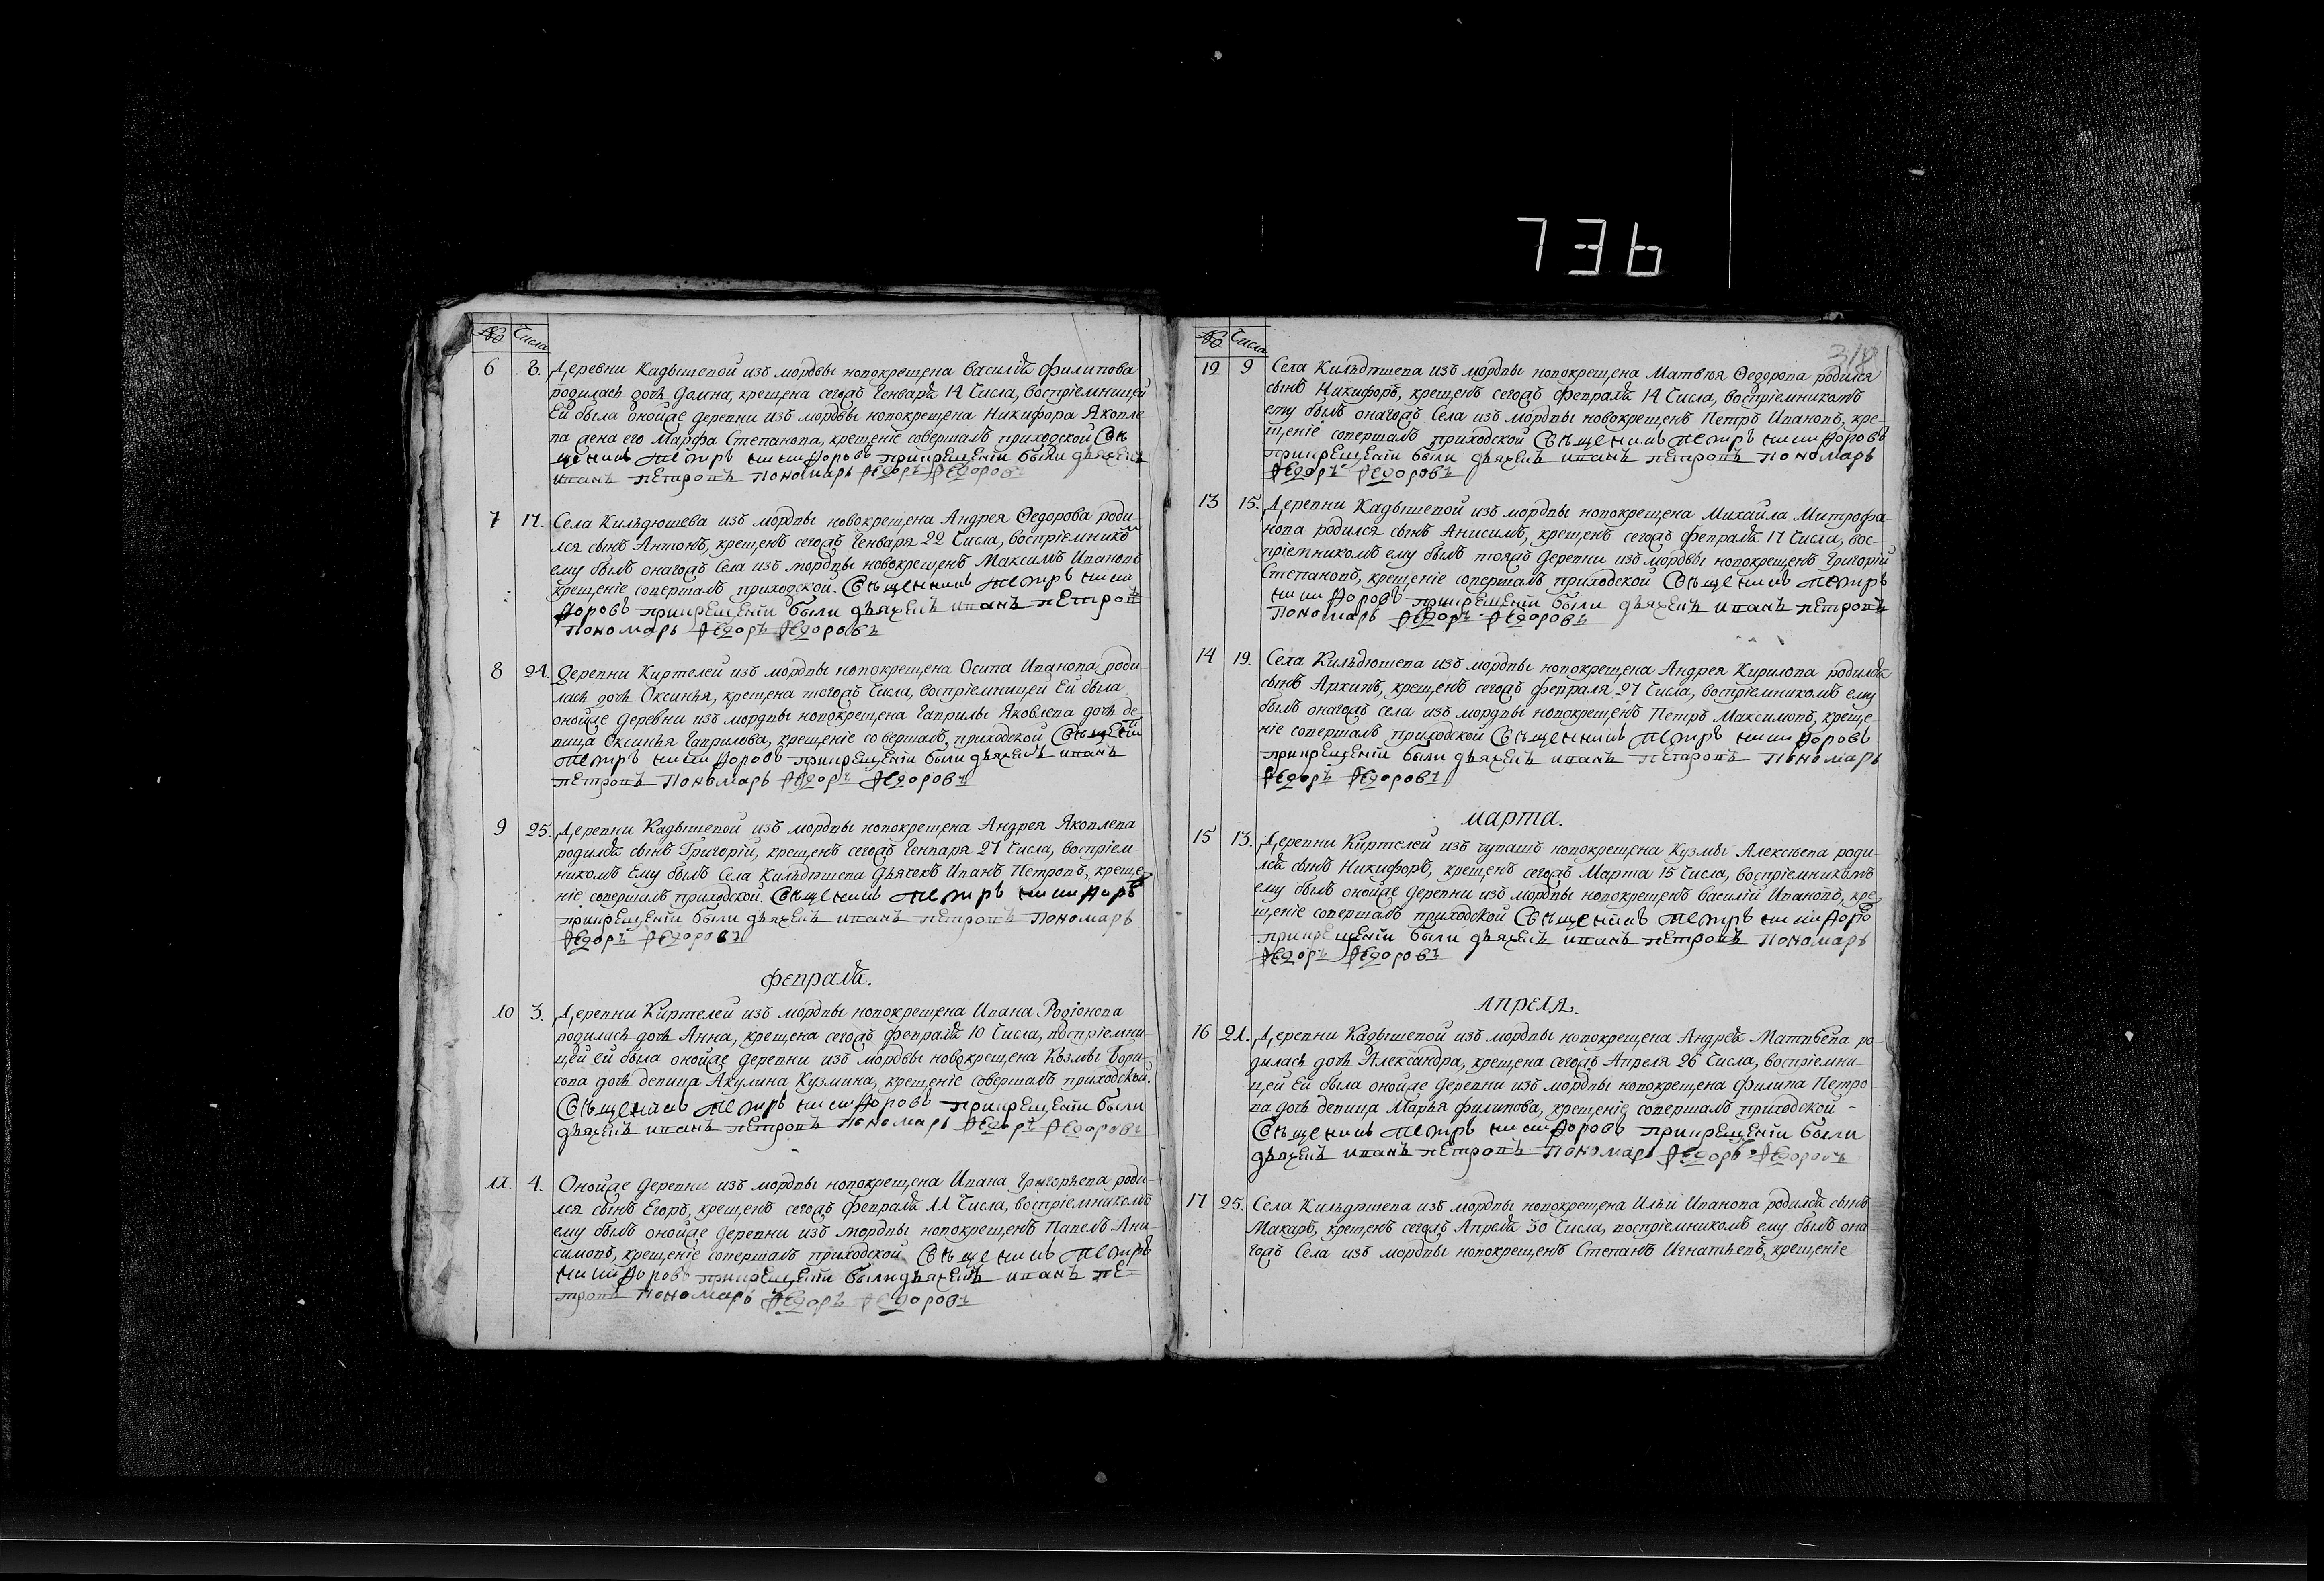 736
№ Числа
6 8. Деревни Кадышевой изъ мордвы новокрещена Василія Филипова
родилась дочь Домна, крещена сегожъ Генваря 14 Числа, воспріемницей
Ей была оной же деревни изъ мордвы новокрещена Никифора Яковле-
ва жена его Марфа Степанова, крещеніе совершалъ приходской Свя
щенникъ Петръ Никифоровъ прикрещеніи были дьячекъ
иванъ петровъ пономарь Федоръ Федоровъ
7 17. Села Кильдюшева изъ мордвы новокрещена Андрея Ѳедорова роди-
лся сынъ Антонъ, крещенъ сегожъ Генваря 22 Числа, воспріемнико
ему былъ онагожъ Села изъ мордвы новокрещенъ Максимъ Ивановъ
крещеніе совершалъ приходской. Священникъ Петръ Ники
форовъ прикрещеніи были дьячекъ иванъ петровъ
пономарь Федоръ Федоровъ
8 24. Деревни Киртелей изъ мордвы новокрещена Осипа Иванова роди-
лась дочь Оксинья, крещена тогожъ Числа, воспріемницей Ей была
оной же деревни изъ мордвы новокрещена Гаврилы Яковлева дочь де-
вица Оксинья Гаврилова, крещеніе совершалъ приходской Священни
Петръ Никифоровъ прикрещеніи были дьячекъ иванъ
петровъ пономарь Федоръ Федоровъ
9 25. Деревни Кадышевой изъ мордвы новокрещена Андрея Яковлева
родился сынъ Григорій, крещенъ сегожъ Генваря 27 Числа, воспріем-
никомъ Ему былъ Села Кильдюшева Дьячекъ Иванъ Петровъ, креще-
ніе совершалъ приходской. Священникъ Петръ Никифоръ
прикрещеніи были дьячекъ иванъ петровъ пономарь
Федоръ Федоровъ
Февраля.
10 3. Деревни Киртелей изъ мордвы новокрещена Ивана Родіонова
родилась дочь Анна, крещена сегожъ Февраля 10 Числа, воспріемни-
цей ей была оной же деревни изъ мордвы новокрещена Козмы Бори-
сова дочь девица Акулина Кузмина, крещеніе совершалъ приходской.
Священникъ Петръ Никифоровъ прикрещеніи были
дьячекъ иванъ петровъ пономарь Федоръ Федоровъ
11. 4. Оной же деревни изъ мордвы новокрещена Ивана Григорьева роди-
лся сынъ Егоръ, крещенъ сегожъ Февраля 11 Числа, воспріемникомъ
ему былъ оной же деревни изъ мордвы новокрещенъ Павелъ Ани-
симовъ, крещеніе совершалъ приходской Священникъ Петръ
Никифоровъ прикрещеніи были дьячекъ иванъ пе-
тровъ пономарь Федоръ Федоровъ
№ Числа
12 9 Села Кильдюшева изъ мордвы новокрещена Матвѣя Ѳедорова родился
сынъ Никифоръ, крещенъ сегожъ Февраля 14 Числа, воспріемникомъ
ему былъ онагожъ Села изъ мордвы новокрещенъ Петръ Ивановъ, кре-
щеніе совершалъ приходской Священникъ Петръ Никифоровъ
прикрещеніи были дьячекъ иванъ петровъ пономарь
Федоръ Федоровъ
13 15. Деревни Кадышевой изъ мордвы новокрещена Михайла Митрофа-
нова родился сынъ Анисимъ, крещенъ сегожъ Февраля 17 Числа, вос-
пріемникомъ ему былъ тояжъ деревни изъ мордвы новокрещенъ Григорій
Степановъ, крещеніе совершалъ приходской Священникъ Петръ
Никифоровъ прикрещеніи были дьячекъ иванъ петровъ
пономарь Федоръ Федоровъ
14 19. Села Кильдюшева изъ мордвы новокрещена Андрея Кирилова родился
сынъ Архипъ, крещенъ сегожъ февраля 27 Числа, воспріемникомъ ему
былъ онагожъ села изъ мордвы новокрещенъ Петръ Максимовъ, креще-
ніе совершалъ приходской Священникъ Петръ Никифоровъ
прикрещеніи были дьячекъ иванъ петровъ пономарь
Федоръ Федоровъ
Марта.
15 13. Деревни Киртелей изъ чувашъ новокрещена Кузмы Алексѣева роди-
лся сынъ Никифоръ, крещенъ сегожъ Марта 15 Числа, воспріемникомъ
ему былъ оной же деревни изъ мордвы новокрещенъ Василій Ивановъ, кре
щеніе совершалъ приходской Священникъ Петръ Никифоро
прикрещеніи были дьячекъ иванъ петровъ пономарь
Федоръ Федоровъ
Апреля.
16 21. Деревни Кадышевой изъ мордвы новокрещена Андрея Матвѣева ро-
дилась дочь Александра, крещена сегожъ Апреля 26 Числа, воспріемни-
цей Ей была оной же деревни изъ мордвы новокрещена Филипа Петро-
ва дочь девица Марья Филипова, крещеніе совершалъ приходской -
Священникъ Петръ Никифоровъ прикрещеніи были
дьячекъ иванъ петровъ пономарь Федоръ Федоровъ
17 25. Села Кильдюшева изъ мордвы новокрещена Ильи Иванова родился сынъ
Макаръ, крещенъ сегожъ Апреля 30 Числа, воспріемникомъ ему былъ она
гожъ Села изъ мордвы новокрещенъ Степанъ Игнатьевъ, крещеніе